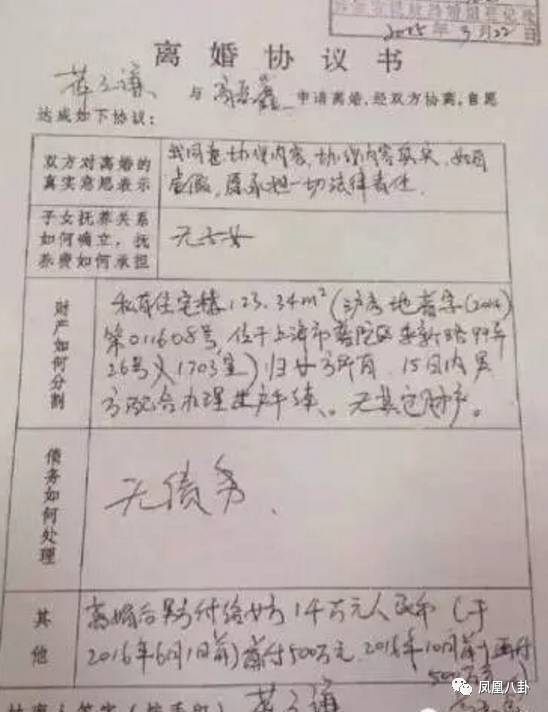 2015年3月22日
离婚协议书
与 申请离婚,经双方协商,自愿
达成如下协议:
双方对离婚的
真实意思表示
我同意协议内容,协议内容真实,如有
虚假,愿承担一切法律责任.
子女抚养关系
如何确立,抚
养费如何承担
无子女
财产如何分割
私有住宅楼123.34m²(沪房地普字(2014)
第011608号,位于上海市普陀区 新路99弄
26号 1703室)归女方所有,15日内男
方配合办理 手续、无其它财产。
债务如何处理
无债务、
其他
离婚后男方付给女方1千万元人民币(于
2016年6月1日前)首付500万元,2016年10月前再付
500万
凤凰八卦